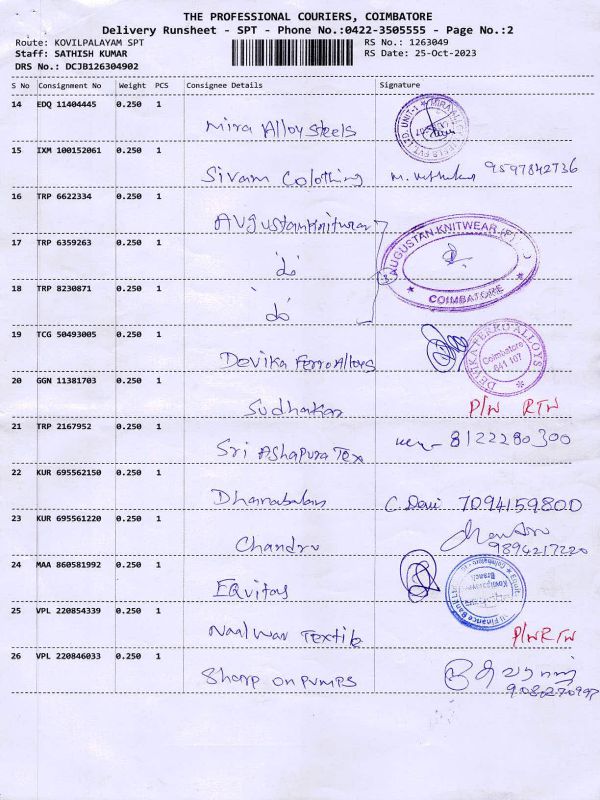 THE PROFESSIONAL COURIERS, COIMBATORE
Delivery Runsheet - SPT - Phone No.:0422-3505555 - Page No.:2
Route: KOVILPALAYAM SPT RS No.: 1263049
Staff: SATHISH KUMAR RS Date: 25-Oct-2023
DRS No.: DCJB126304902
S No Consignment No Weight PCS Consignee Details Signature
14 EDQ 11404445 0.250 1
Mira Alloy Steels
15 IXM 100152061 0.250 1
Sivam Colothing 9597842736
16 TRP 6622334 0.250 1
Augustan Knitwear
AUGUSTAN KNITWEAR (P)
COIMBATORE
17 TRP 6359263 0.250 1
do
18 TRP 8230871 0.250 1
do
19 TCG 50493005 0.250 1
Devika Ferro Alloys
DEVIKA FERRO ALLOYS
Coimbatore
641 107
20 GGN 11381703 0.250 1
Sudhakar P/W RTW
21 TRP 2167952 0.250 1
Sri Ashapura Tex 8122280300
22 KUR 695562150 0.250 1
Dhanabalan C. Devi 7094159800
23 KUR 695561220 0.250 1
Chandru 9894217220
24 MAA 860581992 0.250 1
Equitas
25 VPL 220854339 0.250 1
Naalwar Textile P/W RTW
26 VPL 220846033 0.250 1
Sharp on pumps